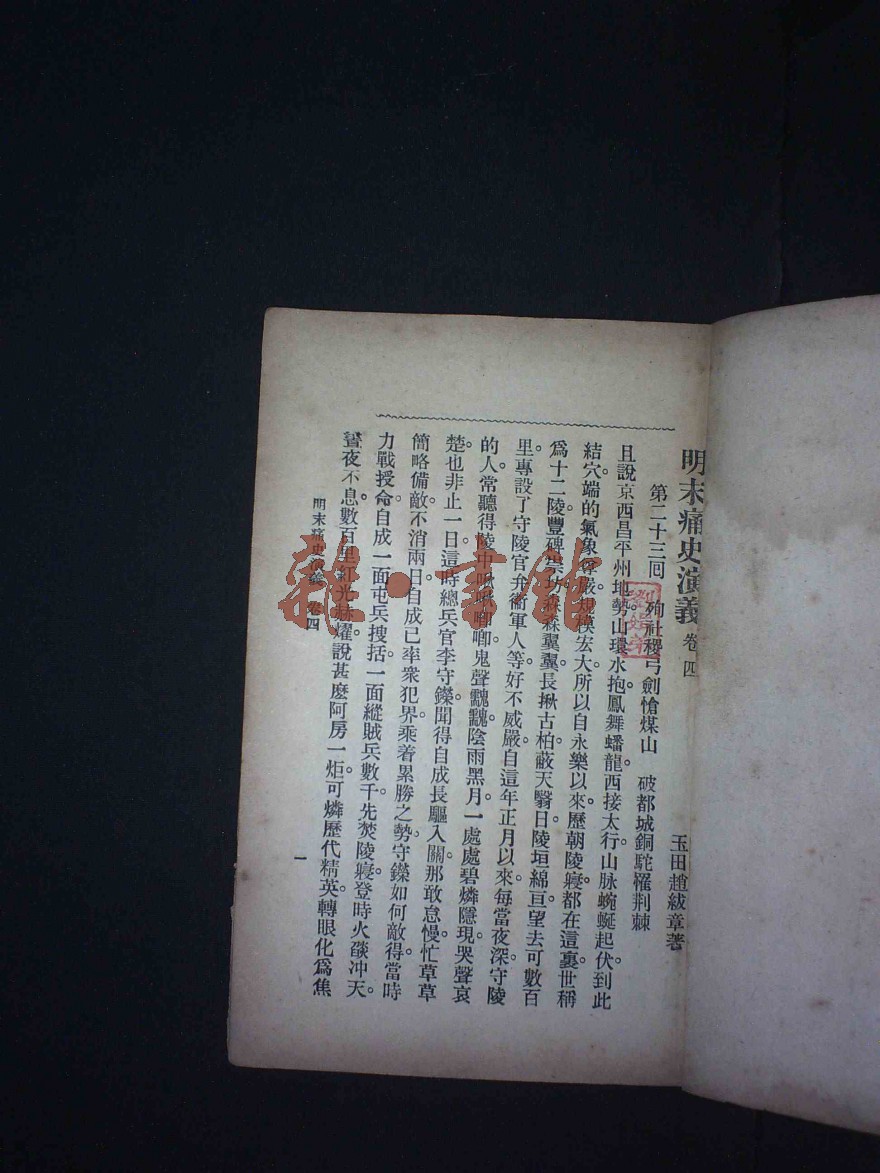 明末痛史演義 卷四
玉田趙紱章著
第二十三回 殉社稷弓劍愴煤山 破都城銅駝罹荆棘
且說京西昌平州地勢山環水抱鳳舞蟠龍西接太行山脉蜿蜒起伏到此
結穴端的氣象 嚴規模宏大所以自永樂以來歷朝陵寢都在這裏世稱
爲十二陵豐碑崇 森森翼翼長楸古柏蔽天翳日陵垣綿亘望去可數百
里。專設了守陵官弁衛軍人等好不威嚴。自這年正月以來每當夜深守陵
的人常聽得陵中呱呱唧唧鬼聲 陰雨黑月。一處處碧燐隱現哭聲哀
楚也非止一日。這時總兵官李守鑅聞得自成長驅入關。那敢怠慢忙草草
簡略備敵。不消兩日自成已率衆犯界。乘着累勝之勢。守鑅如何敵得。當時
力戰授命。自成一面屯兵搜括。一面縱賊兵數千先焚陵寢。登時火燄冲天。
晝夜不息。數百里紅光赫燿。說甚麽阿房一炬。可憐歷代精英。轉眼化爲焦
明末痛史演義 卷四
一
雜·書館